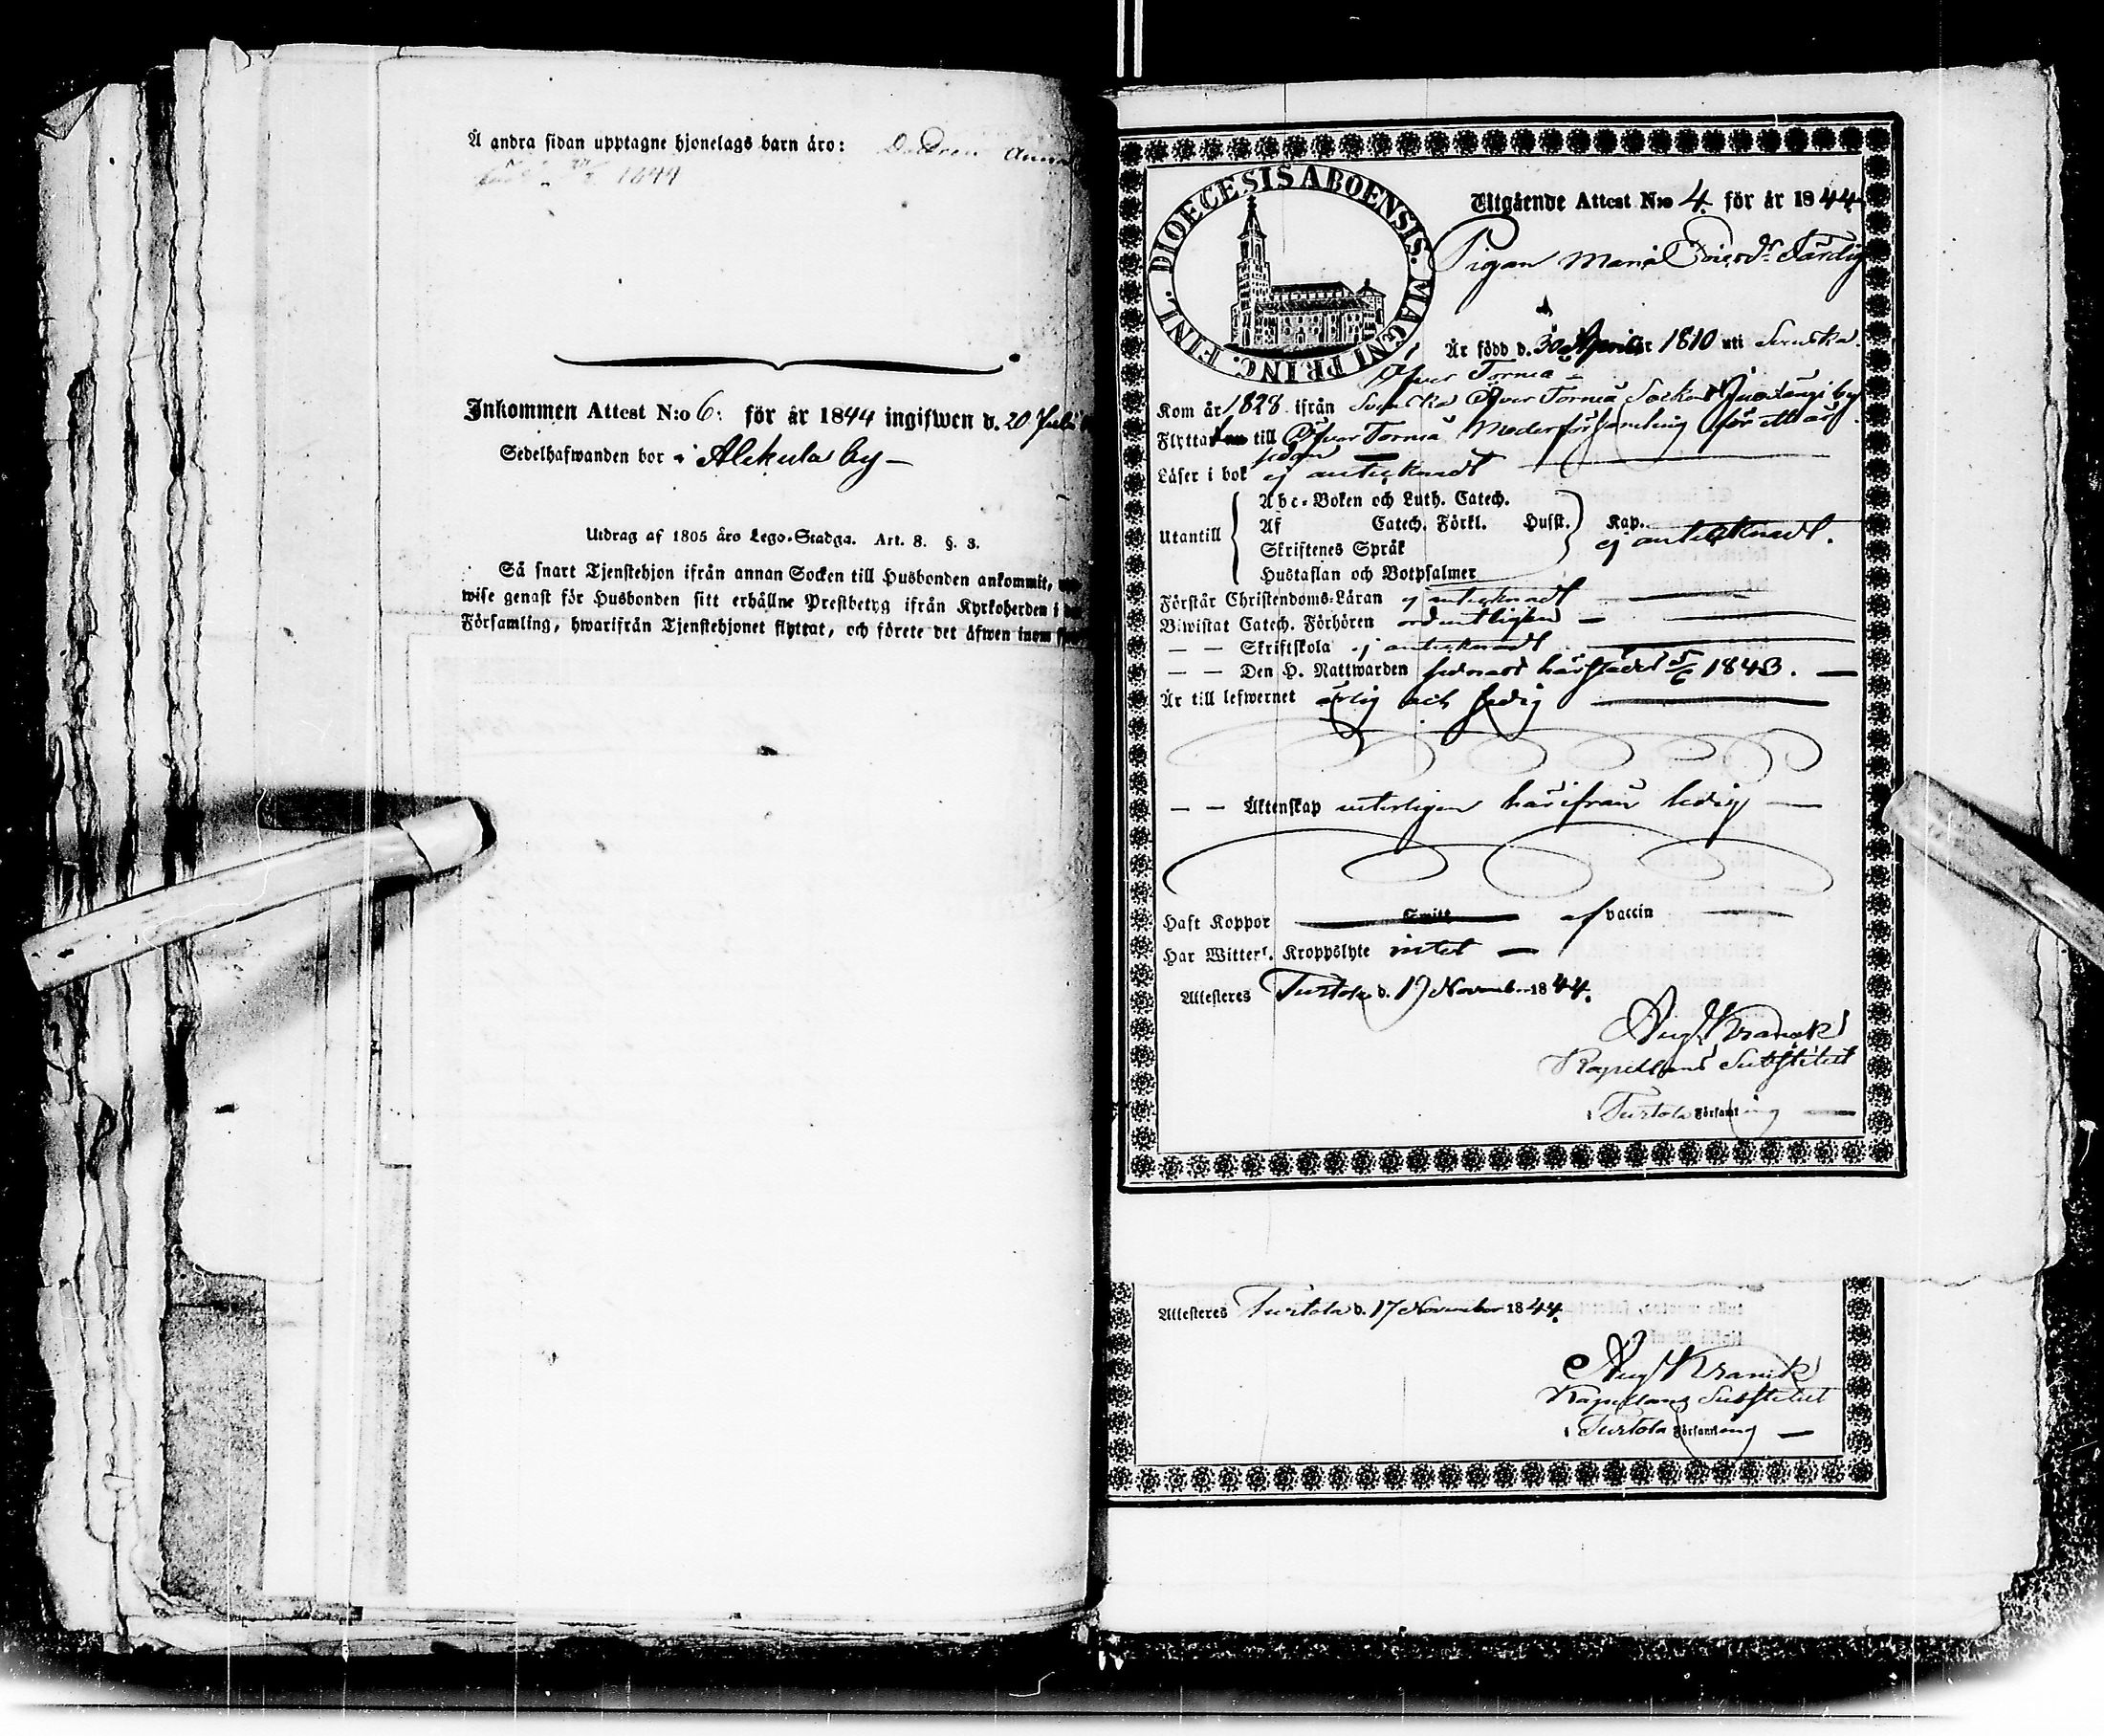 Å andra sidan upptagne hjonelags barn äro: Dottren Anna
1844
Inkommen Attest N:o 6: för år 1844 ingifwen d. 20 Juli
Sedelhafwanden bor i Alckula by —
Utdrag af 1805 års Lego-Stadga. Art. 8. §. 3.
Så snart Tjenstehjon ifrån annan Socken till Husbonden ankommit,
wise genast för Husbonden sitt erhållne Prestbetyg ifrån Kyrkoherden i
Församling, hwarifrån Tjenstehjonet flyttat, och förete det äfwen inom
DIOECESIS ABOENSIS. MAGNI PRINC. FINL.
Utgående Attest N:o 4. för år 1844
Pigan Maria
Är född d. 30 April 1810 uti Svenska
Öfver Torneå —
Kom år 1828 ifrån Svenska Öfver Torneå Socken by
Flyttar till Öfver Torneå Moderförsamling för ett år
sedan
Läser i bok ej antecknadt
Utantill
Abc-Boken och Luth. Catech.
Af Catech. Förkl. Husst. Kap.
Skriftenes Språk ej antecknadt.
Hustaflan och Botpsalmer
Förstår Christendoms-Läran ej antecknadt
Biwistat Catech. Förhören ordentligen —
— — Skriftskola ej antecknadt
— — Den H. Nattwarden sednast härstädes 5/6 1843. —
Är till lefwernet ärlig och sedig
— — Äktenskap veterligen härifrån ledig —
Haft Koppor Smitt af vaccin
Har Witterl. Kroppslyte intet —
Attesteres Turtola d. 17 November 1844.
Aug Kranck
Kapellans Substitut
i Turtola Församling —
Attesteres Turtola d. 17 November 1844.
Aug Kranck
Kapellans Substitut
i Turtola Församling —